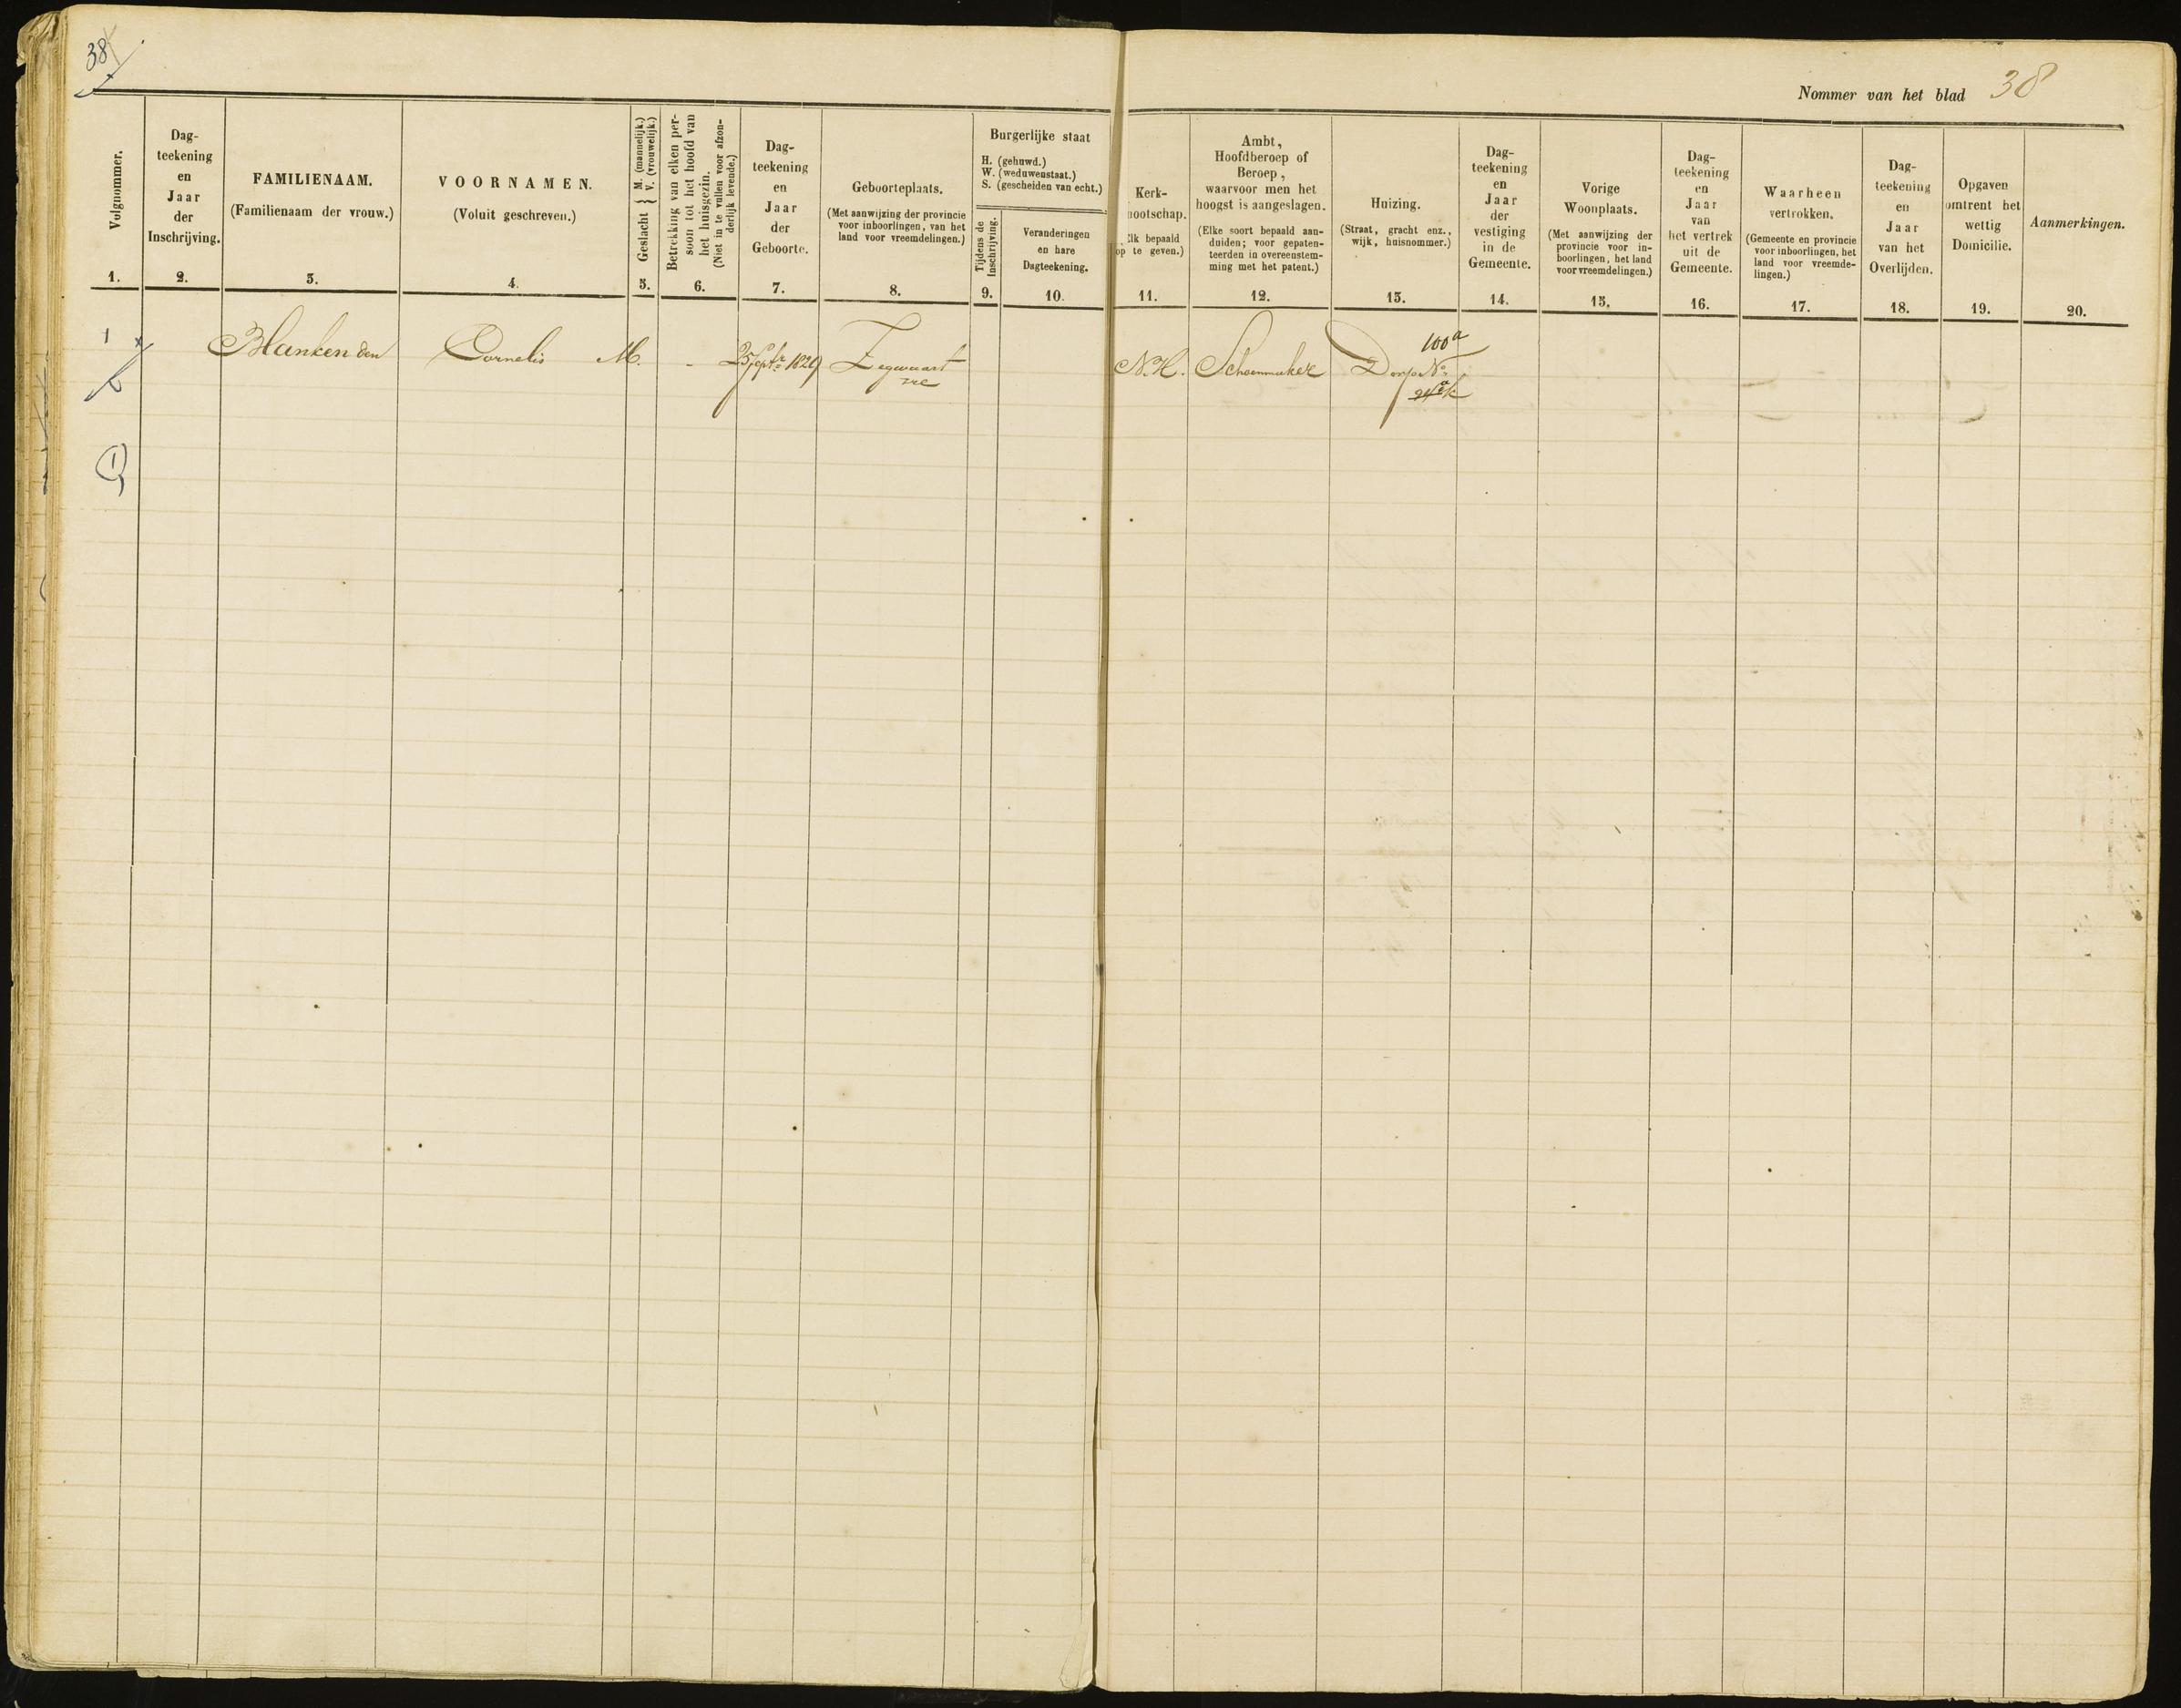 38
Nommer van het blad 38
Volgnommer.
1.
Dag-
teekening
en
Jaar
der
Inschrijving.
2.
FAMILIENAAM.
(Familienaam der vrouw.)
3.
VOORNAMEN.
(Voluit geschreven.)
4.
Geslacht { M. (mannelijk.)
V. (vrouwelijk.)
5.
Betrekking van elken per-
soon tot het hoofd van
het huisgezin.
(Niet in te vullen voor afzon-
derlijk levende.)
6.
Dag-
teekening
en
Jaar
der
Geboorte.
7.
Geboorteplaats.
(Met aanwijzing der provincie
voor inboorlingen, van het
land voor vreemdelingen.)
8.
Burgerlijke staat
H. (gehuwd.)
W. (weduwenstaat.)
S. (gescheiden van echt.)
Tijdens de
Inschrijving.
9.
Veranderingen
en hare
Dagteekening.
10.
Kerk-
nootschap.
Elk bepaald
op te geven.)
11.
Ambt,
Hoofdberoep of
Beroep,
waarvoor men het
hoogst is aangeslagen.
(Elke soort bepaald aan-
duiden; voor gepaten-
teerden in overeenstem-
ming met het patent.)
12.
Huizing.
(Straat, gracht enz.,
wijk, huisnommer.)
13.
Dag-
teekening
en
Jaar
der
vestiging
in de
Gemeente.
14.
Vorige
Woonplaats.
(Met aanwijzing der
provincie voor in-
boorlingen, het land
voor vreemdelingen.)
15.
Dag-
teekening
en
Jaar
van
het vertrek
uit de
Gemeente.
16.
Waarheen
vertrokken.
(Gemeente en provincie
voor inboorlingen, het
land voor vreemde-
lingen.)
17.
Dag-
teekening
en
Jaar
van het
Overlijden.
18.
Opgaven
omtrent het
wettig
Domicilie.
19.
Aanmerkingen.
20.
1
Blanken den Cornelis M. - 25 Sept. 1829 Zegwaart N.H. Schoenmaker Dorp No
100a